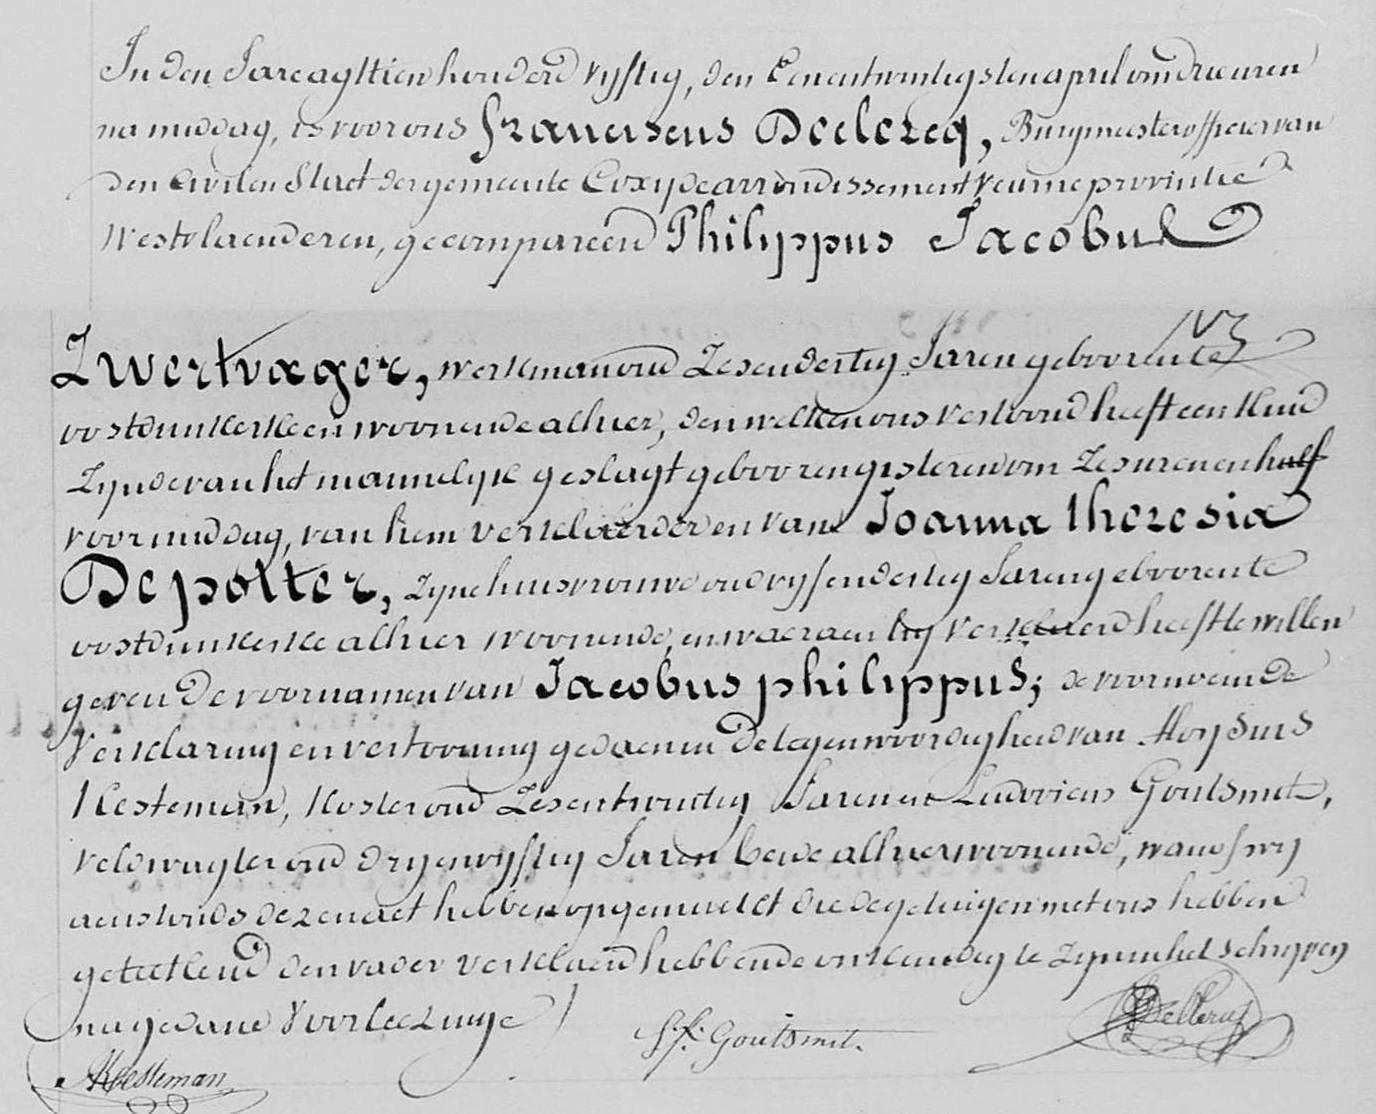 In den Jare agttien honderd vyftig, den Eenentwintigsten april om drie uren
na middag, is voor ons Franciscus Declercq, Burgmeester officier van
den Civilen Staet der gemeente Coxyde arrondissement Veurne provintie
Westvlaenderen, gecompareerd Philippus Jacobus
Zwertvager, werkman oud Zesendertig Jaren geboren te
oostdunkerke en woonende alhier, den welken ons vertoond heeft een Kind
Zynde van het mannelyk geslagt geboren gisteren om Zes uren en half
voormiddag, van hem verklaerder en van Joanna Theresia
Depotter, zyne huisvrouwe oud vyfendertig Jaren geboren te
oostdunkerke alhier woonende, en waeraen hy verklaerd heeft te willen
geven de voornamen van Jacobus philippus; de voornoemde
Verklaring en vertooning gedaen in de tegenwoordigheid van Aloysius
Kesteman, Koster oud Zesentwintig Jaren en Ludovicus Goutsmit,
veldwagter oud dryenvyftig Jaren beide alhier woonende, waer of wy
aenstonds dezen act hebben opgemaekt die de getuigen met ons hebben
geteekend den vader verklaerd hebbende onkundig te zyn in het schryven
na gedane Voorlezinge
A Kesteman L.F. Goutsmit. F Declercq